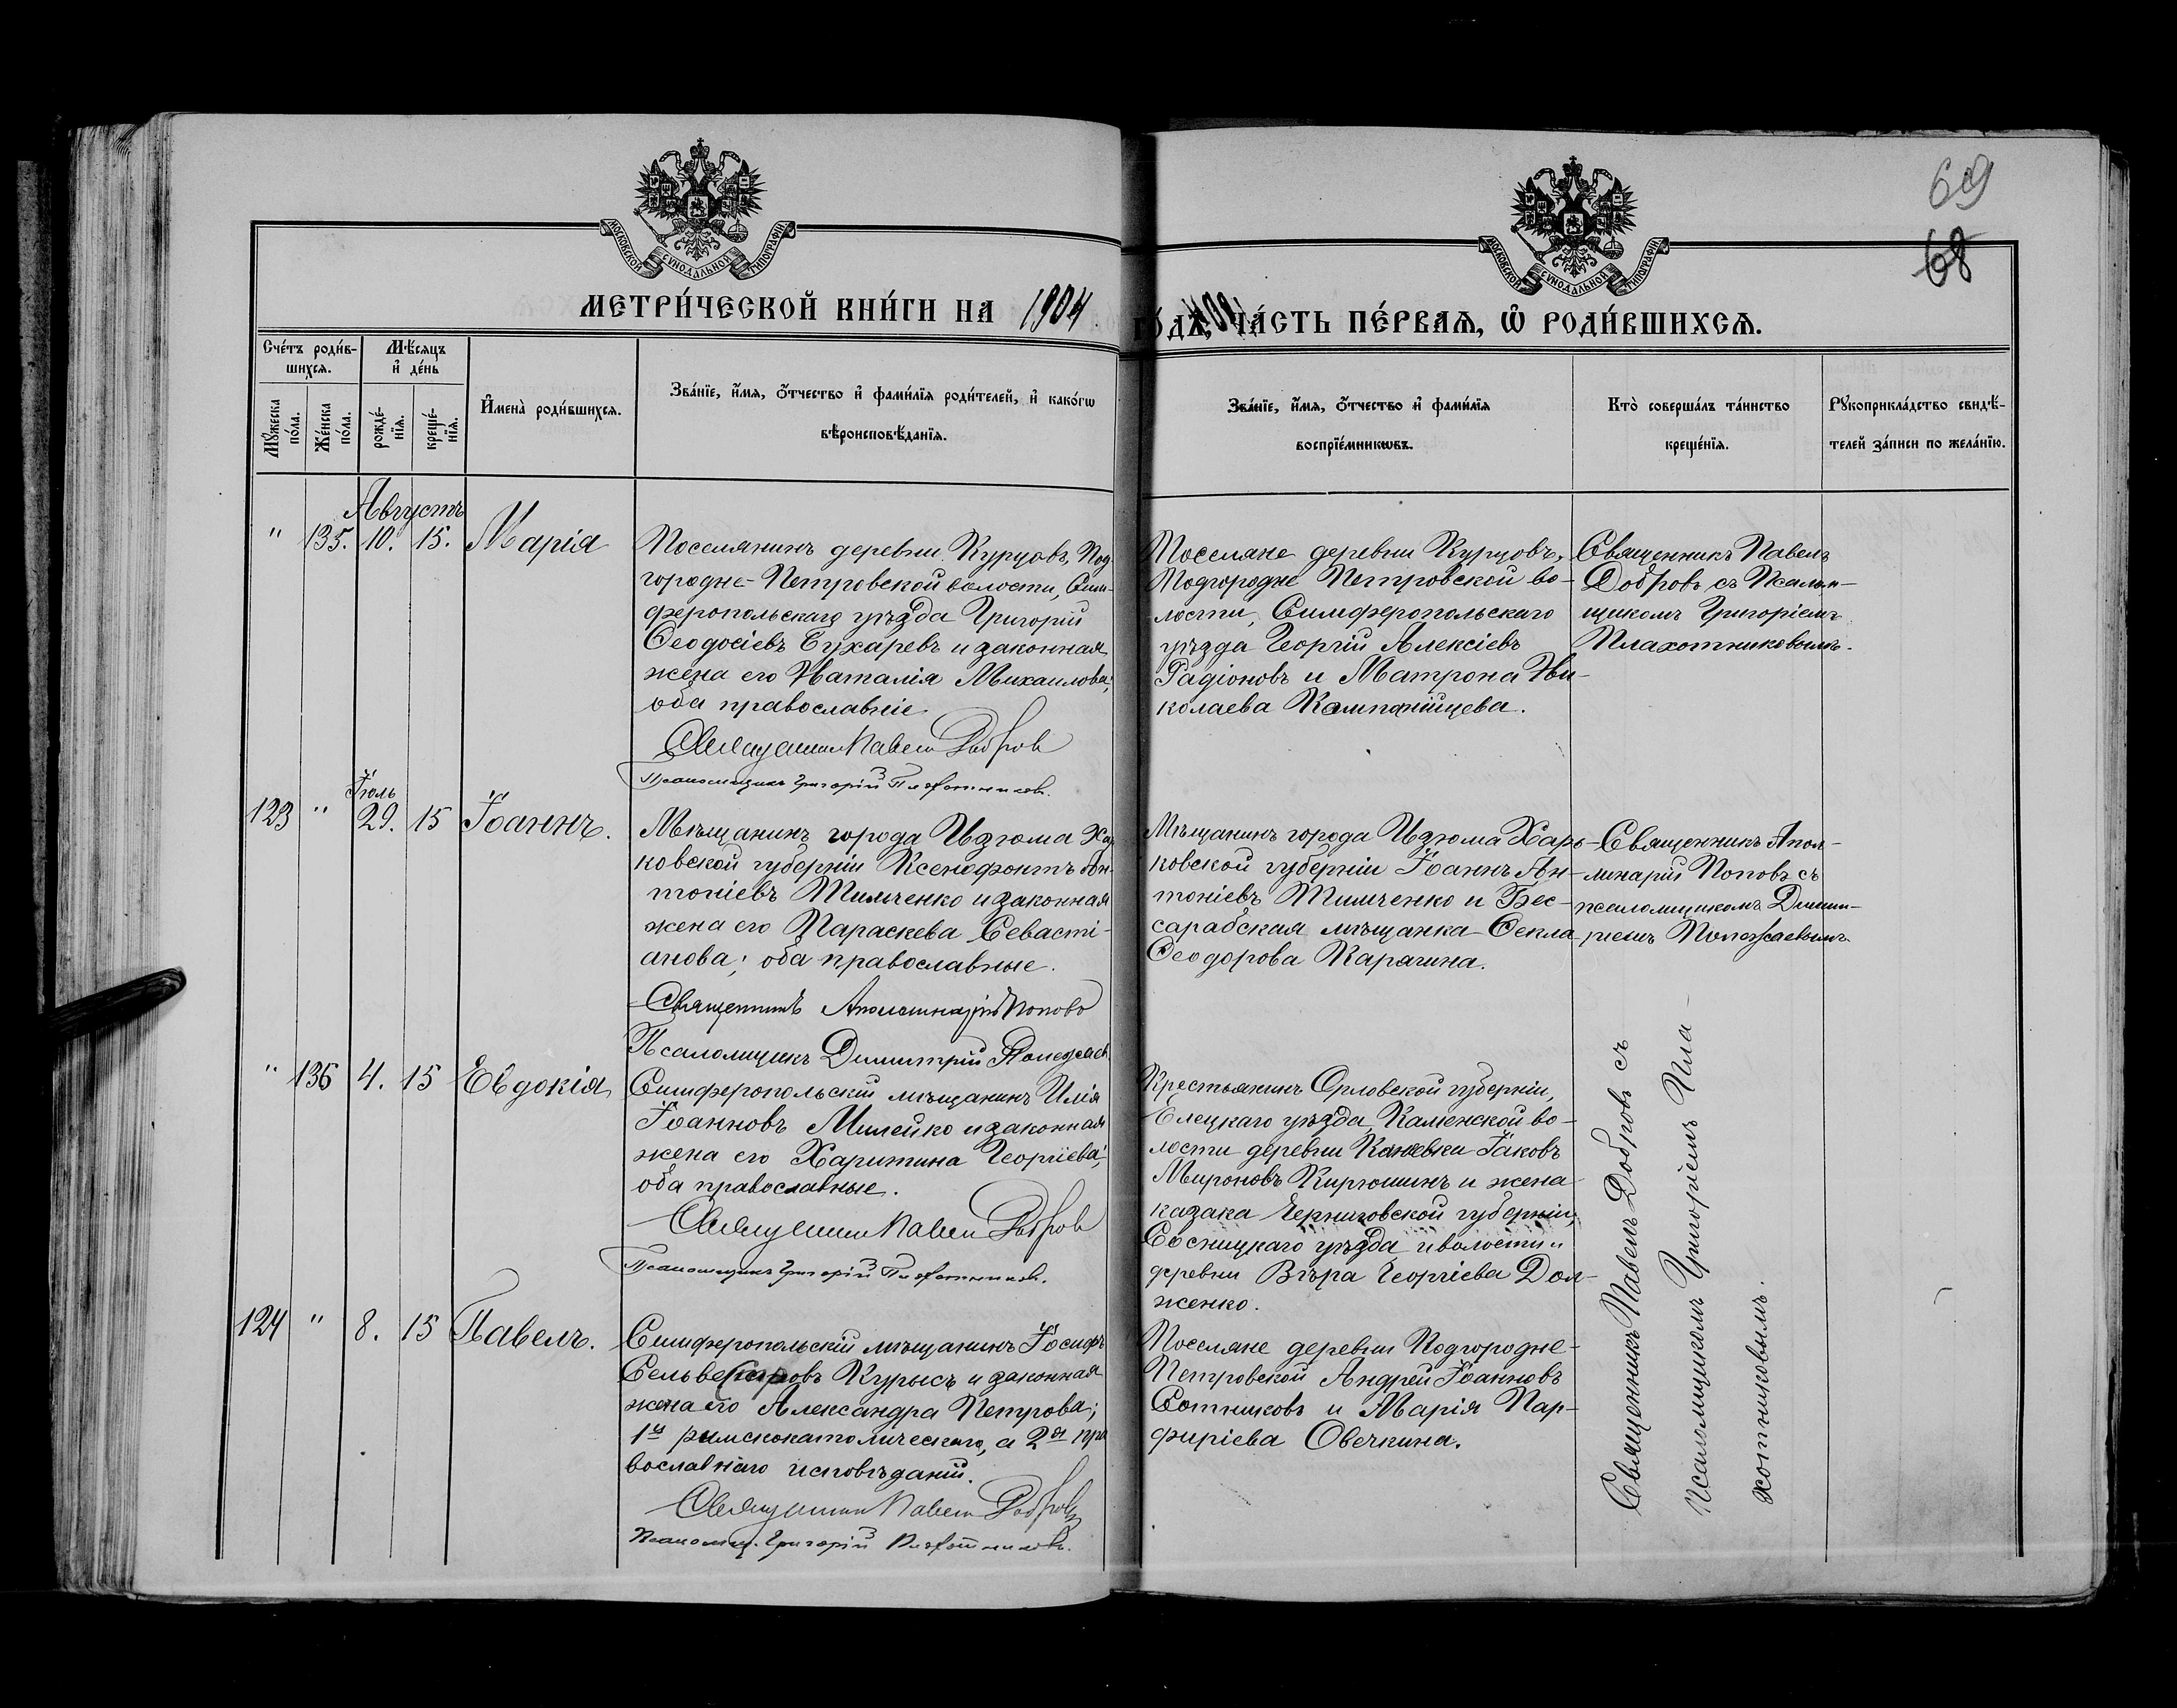 69
68
МОСКОВСКОЙ СѴНОДАЛЬНОЙ ТИПОГРАФІИ
МОСКОВСКОЙ СѴНОДАЛЬНОЙ ТИПОГРАФІИ
МЕТРИ́ЧЕСКОЙ КНИ́ГИ НА 1904
ГО́ДЪ, ЧА́СТЬ ПЕ́РВАЯ, Ѿ РОДИ́ВШИХСЯ.
Сче́тъ роди́в-
шихся.
Мꙋ́жеска
по́ла.
Же́нска
по́ла.
Мѣ́сяцъ
и҆ де́нь
рожде́-
нїя.
креще́-
нїя.
И҆мена̀ роди́вшихся.
Зва́нїе, и҆́мя, ѻ҆́тчество и҆ фами́лїя роди́телей, и҆ како́гѡ
вѣроисповѣ́данїя.
Зва́нїе, и҆́мя, ѻ҆́тчество и҆ фами́лїя
воспрїе́мникѡвъ.
Кто̀ соверша́лъ та́инство
креще́нїя.
Рꙋкоприкла́дство свидѣ́-
телей за́писи по жела́нїю.
Августъ
" 135. 10. 15. Марія
Поселянинъ деревни Курцовъ, Под-
городне-Петровской волости, Сим-
феропольскаго уѣзда Григорій
Ѳеодосіевъ Бухаревъ и законная
жена его Наталія Михаилова;
оба православніе.
Священникъ Павелъ Добровъ
Псаломщикъ Григорій Плахотниковъ.
Поселяне деревни Курцовъ,
Подгородне Петровской во-
лости, Симферопольскаго
уѣзда Георгій Алексіевъ
Радіоновъ и Матрона Ни-
колаева Компанійцева.
Священникъ Павелъ
Добровъ съ Псалом-
щикомъ Григоріемъ
Плахотниковымъ.
Іюль
123 " 29. 15 Іоаннъ.
Мѣщанинъ города Изюма Харь-
ковской губерніи Ксенофонтъ Ан-
тоніевъ Тимченко и законная
жена его Параскева Севасті-
анова; оба православные.
Священникъ Аполлинарій Поповъ
Псаломщикъ Димитрій Полежаевъ
Мѣщанинъ города Изюма Харь-
ковской губерніи Іоаннъ Ан-
тоніевъ Тимченко и Бес-
сарабская мѣщанка Ѳекла
Ѳеодорова Карагина.
Священникъ Апол-
линарій Поповъ съ
псаломщикомъ Димит-
ріемъ Полежаевымъ.
" 136 4. 15 Евдокія
Симферопольскій мѣщанинъ Илія
Іоанновъ Милейко и законная
жена его Харитина Георгіева;
оба православные.
Священникъ Павелъ Добровъ
Псаломщикъ Григорій Плахотниковъ.
Крестьянинъ Орловской губерніи,
Елецкаго уѣзда, Каменской во-
лости деревни Каневки Іаковъ
Мироновъ Кирюшинъ и жена
казака Черниговской губерніи,
Сосницкаго уѣзда и волости и
деревни Вѣра Георгіева Дол-
женко.
Священникъ Павелъ Добровъ съ
Псаломщикомъ Григоріемъ Пла-
хотниковымъ.
124 " 8. 15 Павелъ.
Симферопольскій мѣщанинъ Іосифъ
Сельвестровъ Курысъ и законная
жена его Александра Петрова;
1й римскокатолическаго, а 2я пра
вославнаго исповѣданій.
Священникъ Павелъ Добровъ
Псаломщ. Григорій Плахотниковъ.
Поселяне деревни Подгородне-
Петровской Андрей Іоанновъ
Сотниковъ и Марія Пар-
фиріева Овечкина.